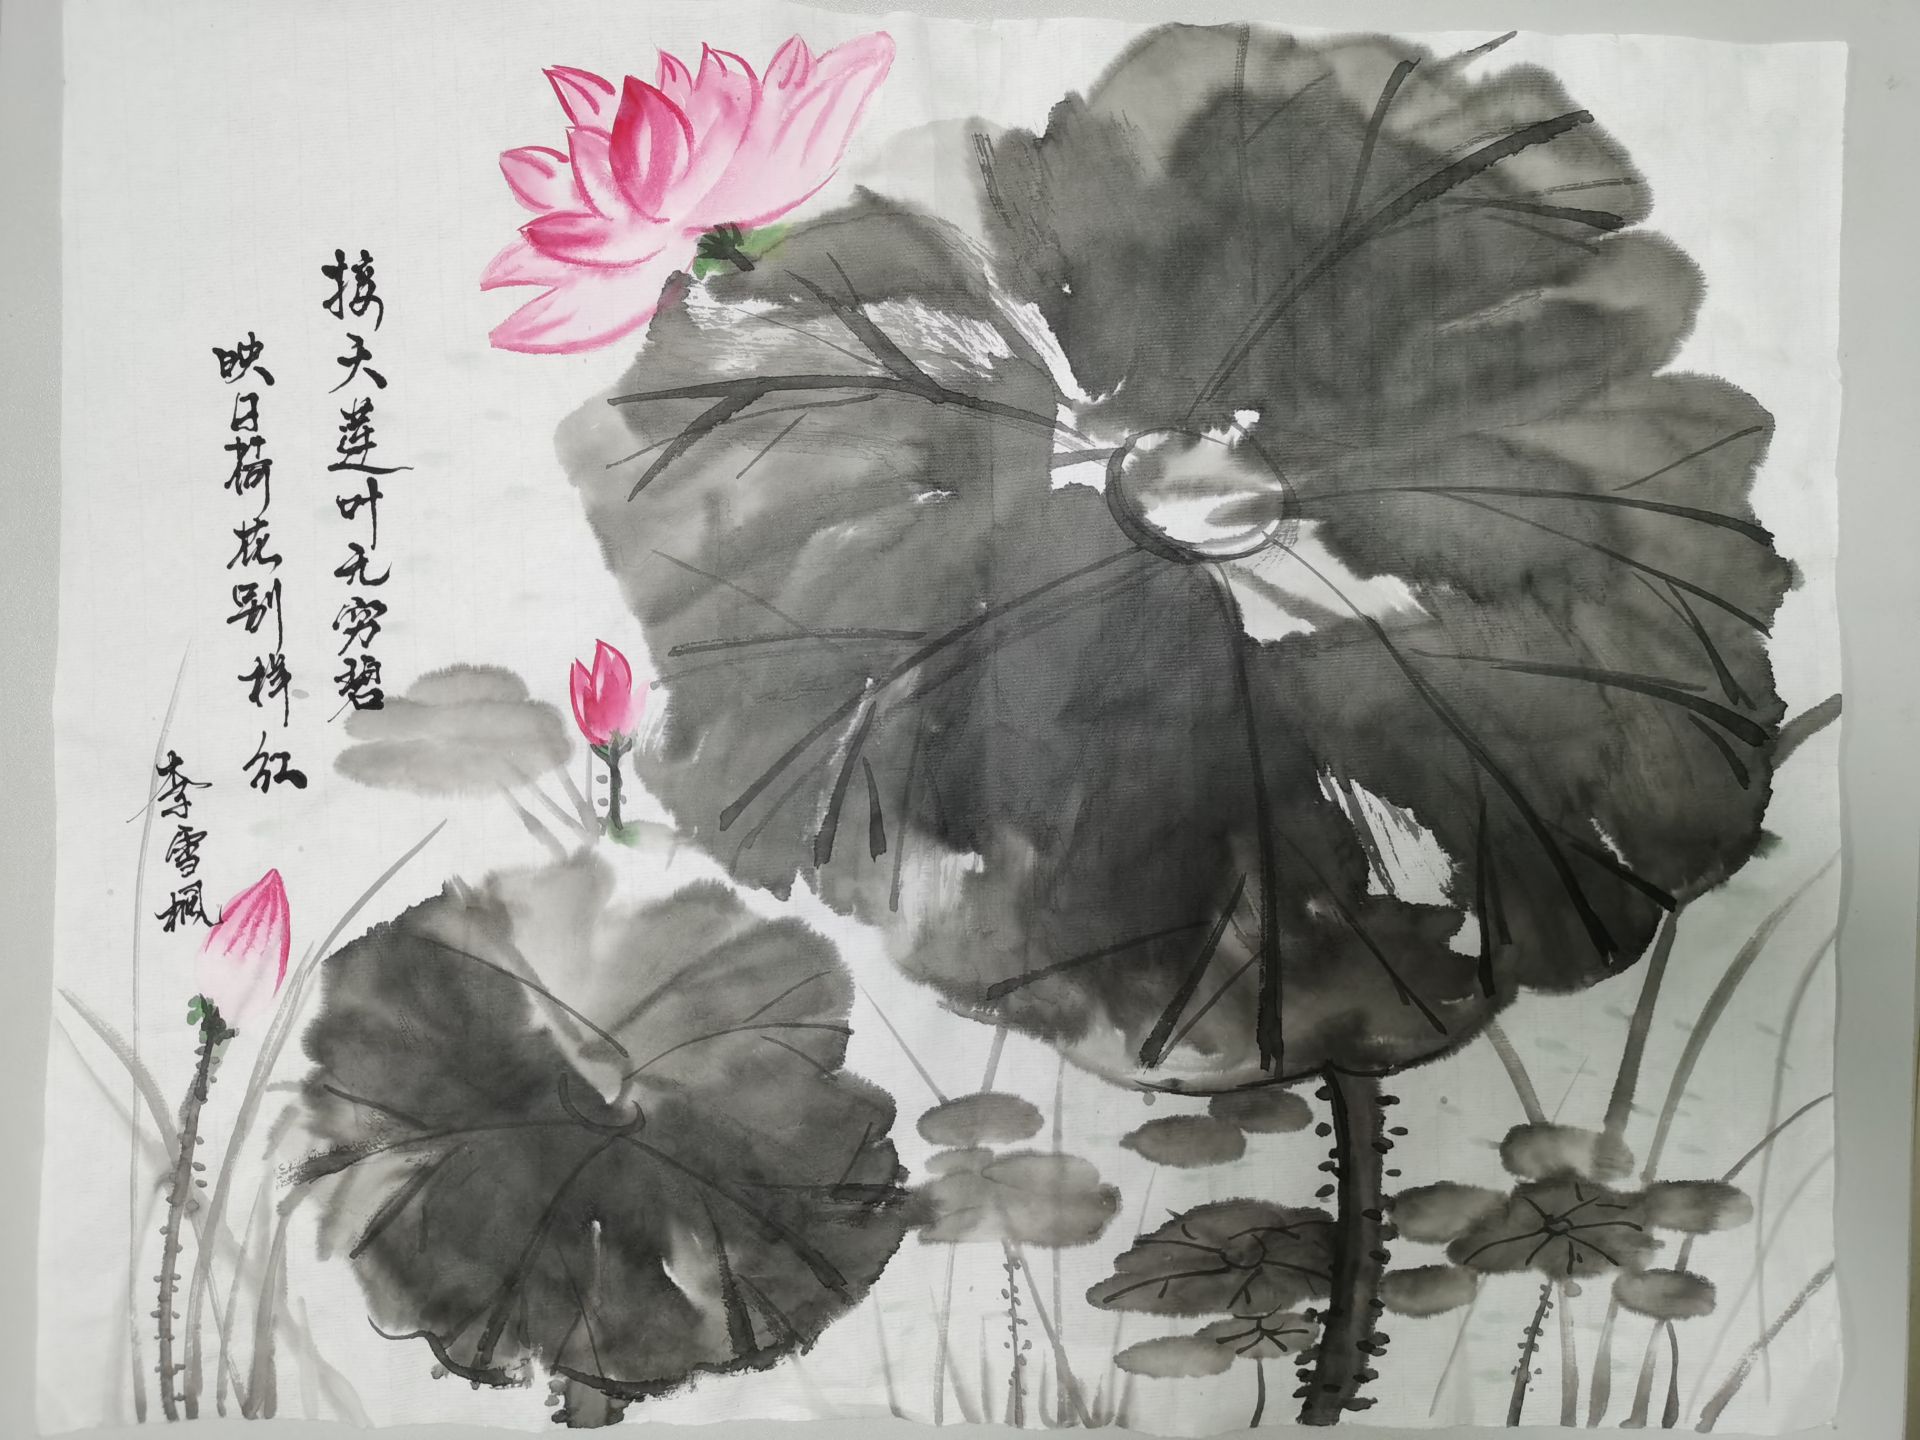 接天莲叶无穷碧
映日荷花别样红
李雪枫